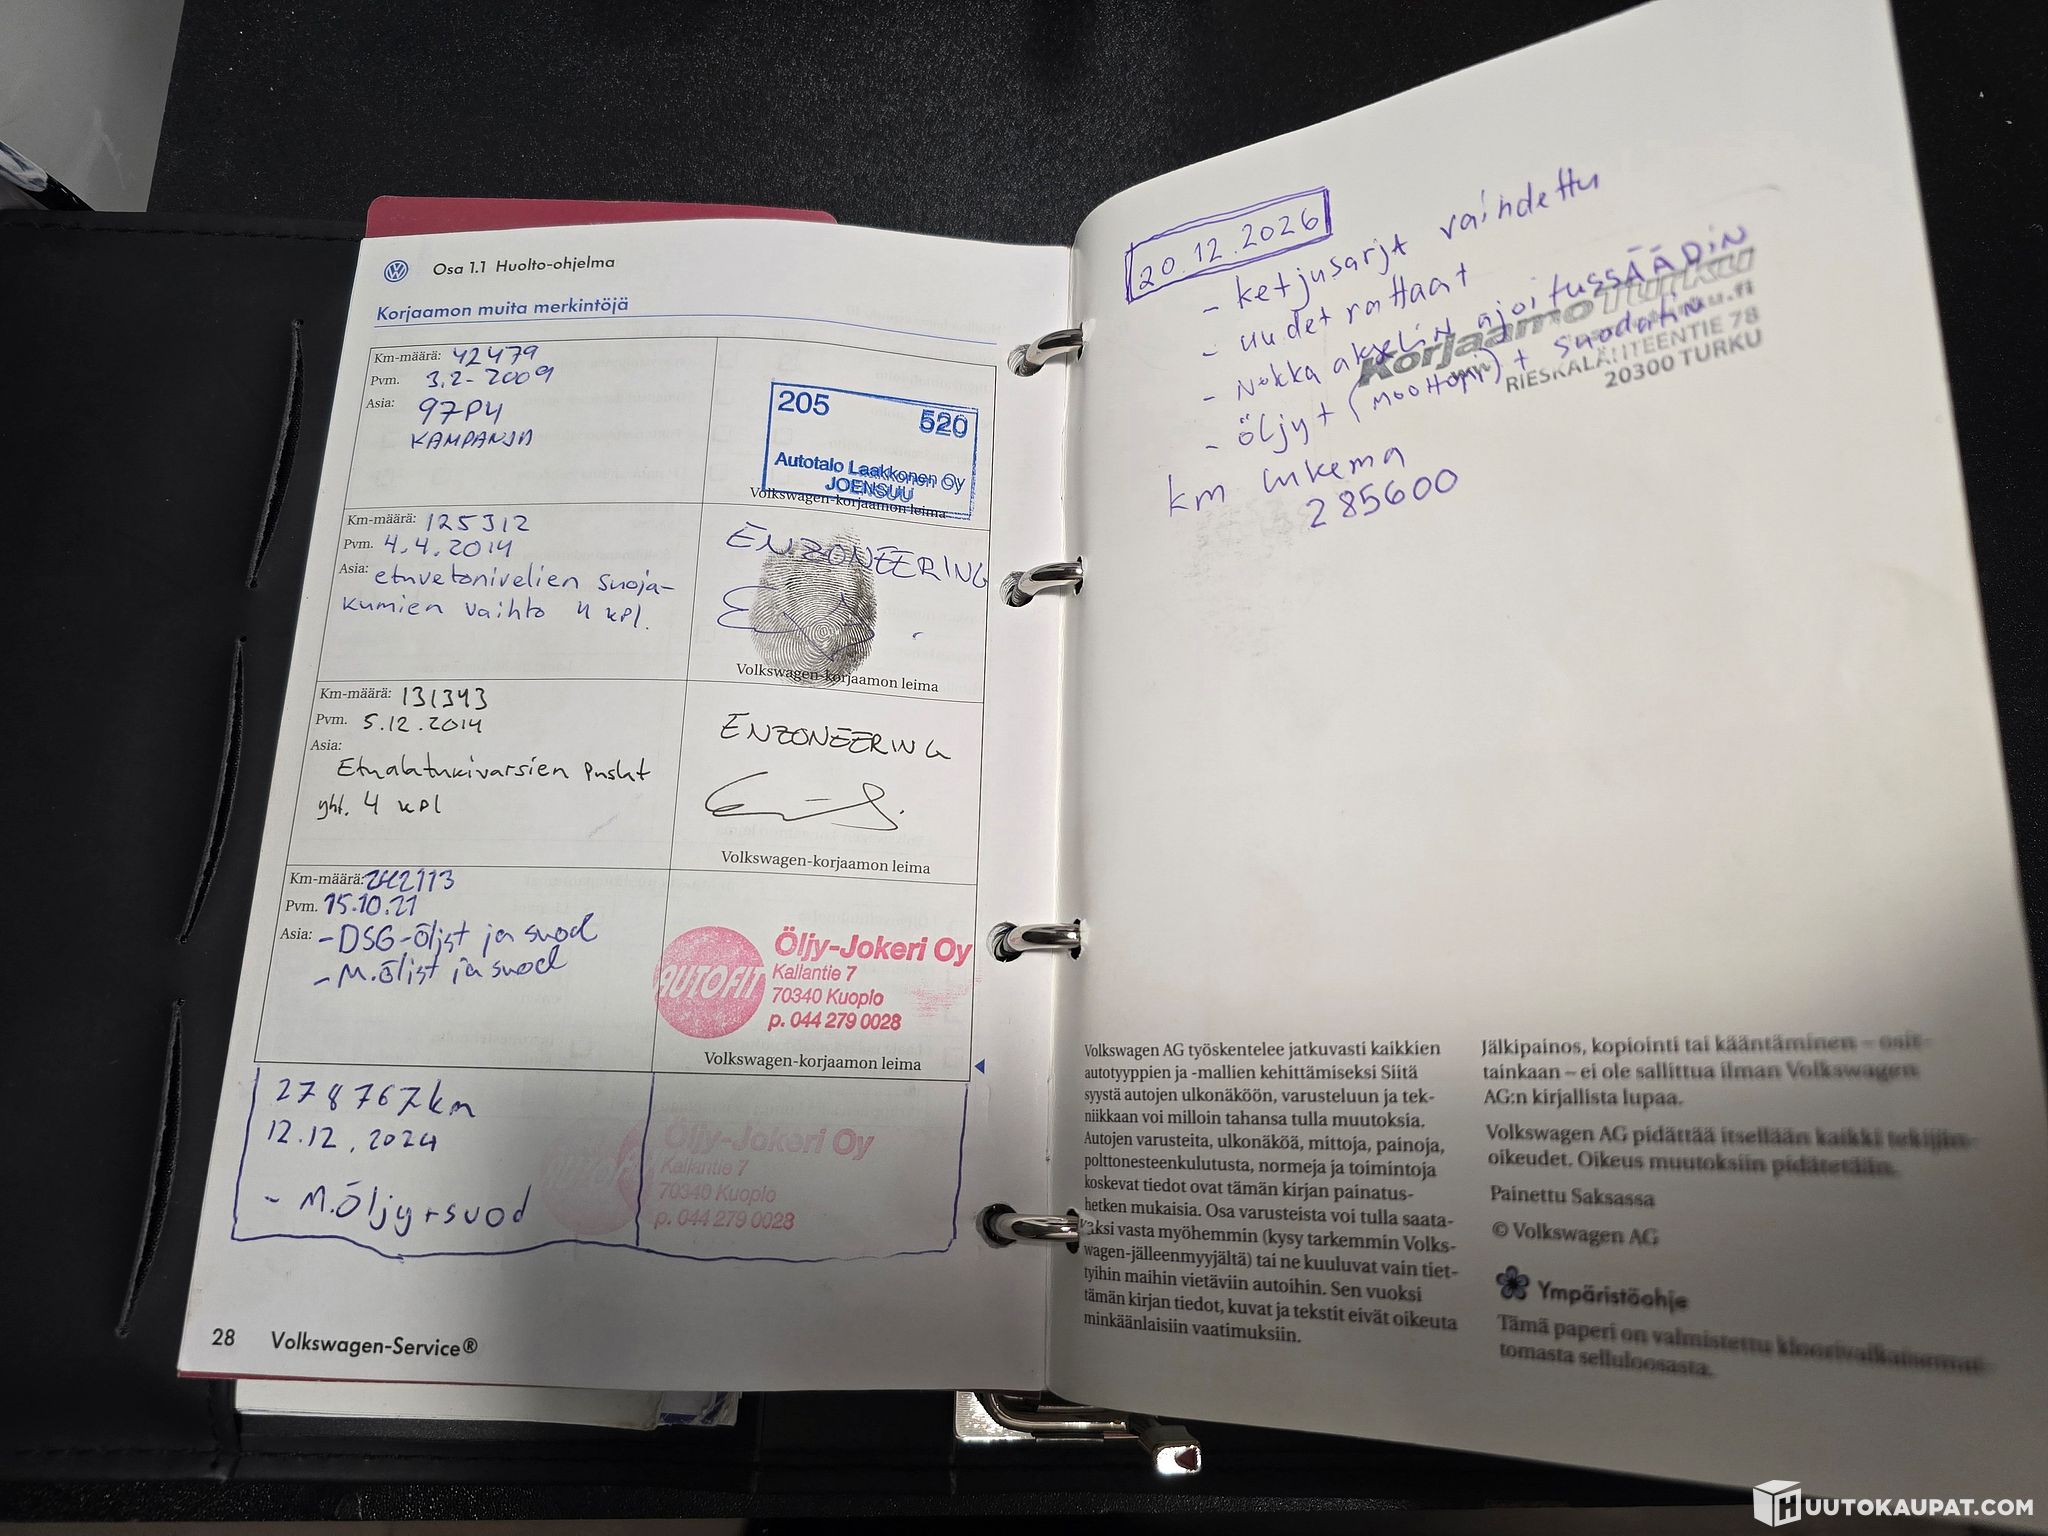 Osa 1.1 Huolto-ohjelma
Korjaamon muita merkintöjä
Km-määrä: 42479
Pvm. 3.2-2009
Asia: 97P4
KAMPANJA
205 520
Autotalo Laakkonen Oy
JOENSUU
Volkswagen-korjaamon leima
Km-määrä: 125312
Pvm. 4.4.2014
Asia: etuvetonivelien suoja-
kumien vaihto 4 kpl.
ENZONEERING
Volkswagen-korjaamon leima
Km-määrä: 131343
Pvm. 5.12.2014
Asia:
Etualatukivarsien puslat
yht. 4 kpl
ENZONEERING
Volkswagen-korjaamon leima
Km-määrä: 242113
Pvm. 15.10.21
Asia: -DSG-öljyt ja suod
- M.öljyt ja suod
AUTOFIT
Öljy-Jokeri Oy
Kallantie 7
70340 Kuopio
p. 044 279 0028
Volkswagen-korjaamon leima
278767km
12.12.2024
- M.Öljy+suod
Öljy-Jokeri Oy
Kallantie 7
70340 Kuopio
p. 044 279 0028
28 Volkswagen-Service®
20.12.2026
- ketjusarja vaihdettu
- uudet rattaat
- Nokka akselin ajoitussÄÄDiN
- Öljyt (moottori) + suodatin
km lukema
285600
KorjaamoTurku
RIESKALÄHTEENTIE 78
20300 TURKU
Volkswagen AG työskentelee jatkuvasti kaikkien
autotyyppien ja -mallien kehittämiseksi Siitä
syystä autojen ulkonäköön, varusteluun ja tek-
niikkaan voi milloin tahansa tulla muutoksia.
Autojen varusteita, ulkonäköä, mittoja, painoja,
polttonesteenkulutusta, normeja ja toimintoja
koskevat tiedot ovat tämän kirjan painatus-
hetken mukaisia. Osa varusteista voi tulla saata-
vaksi vasta myöhemmin (kysy tarkemmin Volks-
wagen-jälleenmyyjältä) tai ne kuuluvat vain tiet-
tyihin maihin vietäviin autoihin. Sen vuoksi
tämän kirjan tiedot, kuvat ja tekstit eivät oikeuta
minkäänlaisiin vaatimuksiin.
Jälkipainos, kopiointi tai kääntäminen – osit-
tainkaan – ei ole sallittua ilman Volkswagen
AG:n kirjallista lupaa.
Volkswagen AG pidättää itsellään kaikki tekijän-
oikeudet. Oikeus muutoksiin pidätetään.
Painettu Saksassa
© Volkswagen AG
Ympäristöohje
Tämä paperi on valmistettu kloorivalkaisemat-
tomasta selluloosasta.
HUUTOKAUPAT.COM